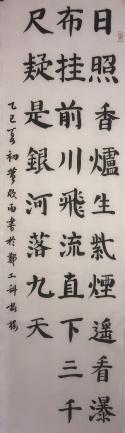 日照香爐生紫煙遙看瀑
布挂前川飛流直下三千
尺疑是銀河落九天
乙巳夏初董欣雨書於鄭工科